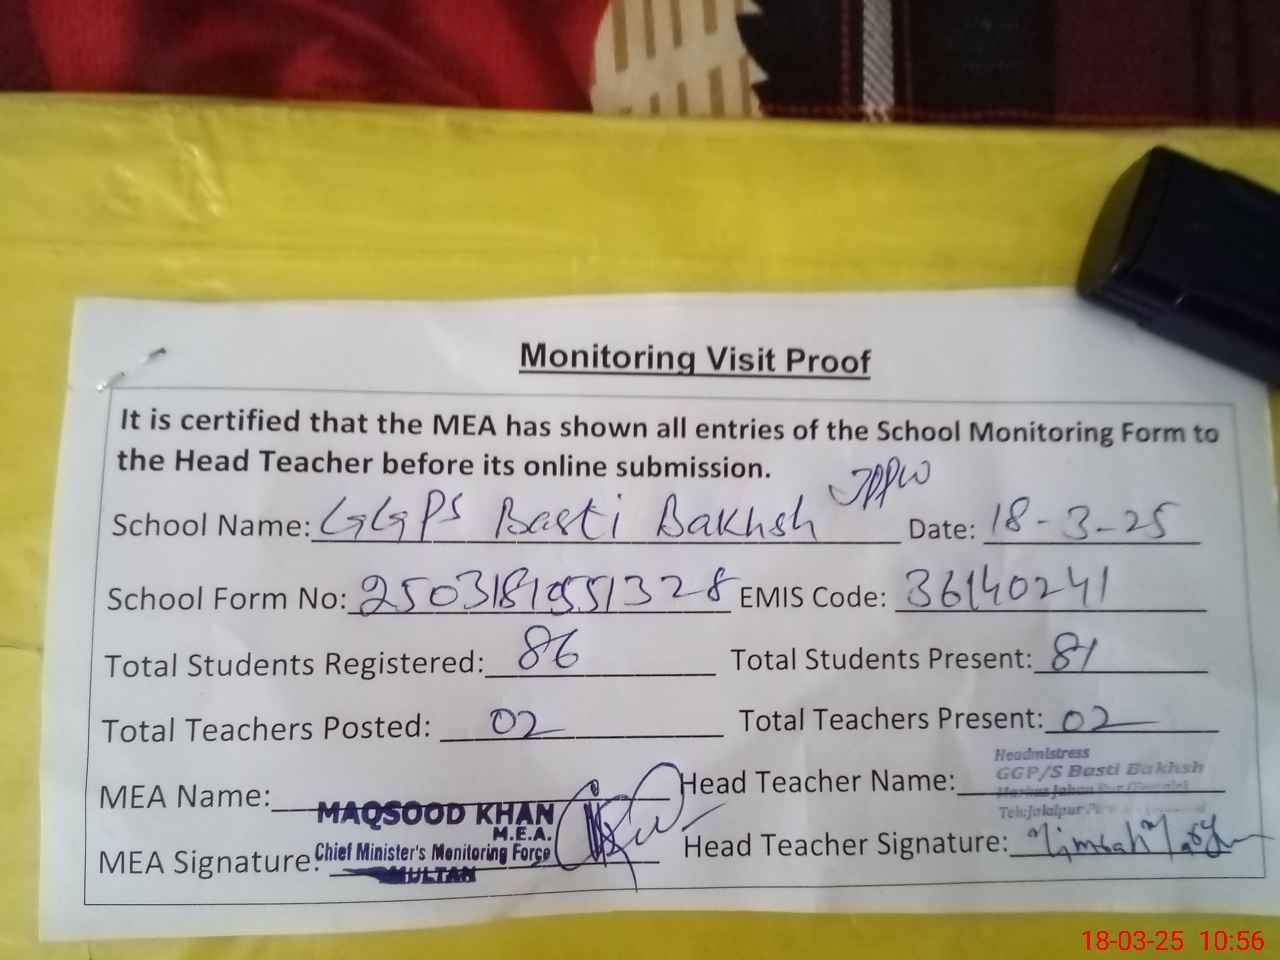 Monitoring Visit Proof
It is certified that the MEA has shown all entries of the School Monitoring Form to
the Head Teacher before its online submission.
School Name: GGPS Basti Bakhsh JPPW Date: 18-3-25
School Form No: 2503181951328 EMIS Code: 36140241
Total Students Registered: 86 Total Students Present: 81
Total Teachers Posted: 02 Total Teachers Present: 02
MEA Name: Head Teacher Name:
Headmistress
GGP/S Basti Bakhsh
MAQSOOD KHAN
M.E.A.
Chief Minister's Monitoring Force
MULTAN
MEA Signature: Head Teacher Signature:
18-03-25 10:56